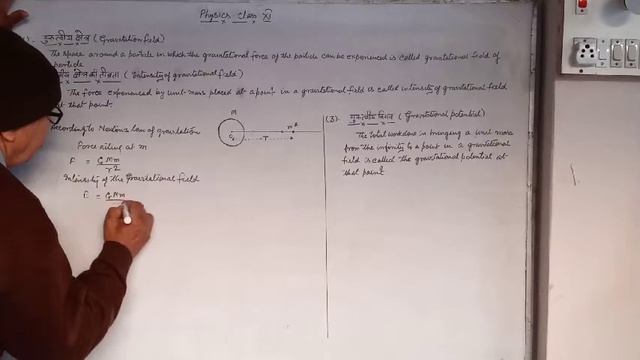 Physics Class XI
गुरुत्वीय क्षेत्र (Gravitation field)
The space around a particle in which the gravitational force of the particle can be experienced is called gravitational field of
particle
क्षेत्र की तीव्रता (Intensity of gravitational field)
The force experienced by unit mass placed at a point in a gravitational field is called intensity of gravitational field
at that point.
According to Newton's Law of gravitation
Force acting at m
F = GMm
r²
Intensity of the Gravitational field
E = GMm
M
r
m
(3). गुरुत्वीय विभव (Gravitational potential)
The total workdone in bringing a unit mass
from the infinity to a point in a gravitational
field is called the gravitational potential at
that point